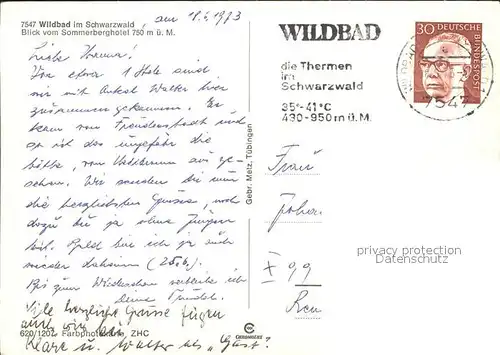 7547 Wildbad im Schwarzwald, am 18.6.1973
Blick vom Sommerberghotel 750 m ü. M.
Liebe Hanna!
Vor etwa 1 Std. sind
wir mit Onkel Walter hier
zusammen gekommen. Er
kam von Freudenstadt und
so ist das ungefähr die
Hälfte, von aus ge-
sehen. Wir senden dir nun
die herzlichsten Grüsse, und
dazu du ja ohne
bist. Bald bin ich ja auch
wieder daheim (25.6.)
Bis zum Wiedersehen verbleibe ich
deine
Viele herzliche Grüsse fügen
auch wir bei
Klara u. Walter als "Gast"!
620/1207 Farbphoto ZHC
Gebr. Metz, Tübingen
CHROMOLUX
WILDBAD
die Thermen
im
Schwarzwald
35°-41°C
430-950 m ü. M.
30 DEUTSCHE BUNDESPOST
WILDBAD
7547
Frau
Joha.
privacy protection
www.oldthing.de
X 99